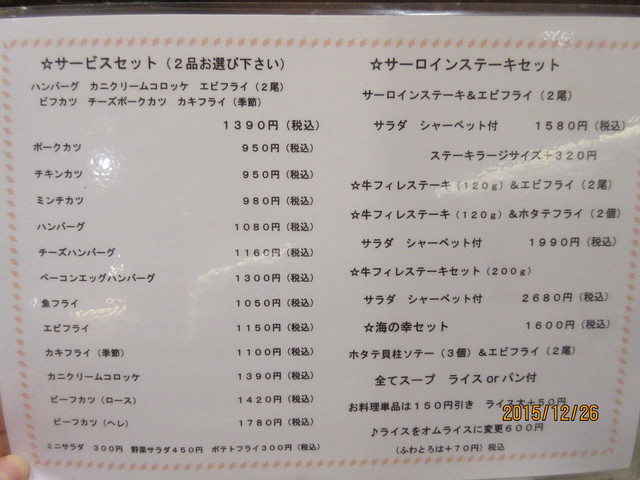 ☆サービスセット（２品お選び下さい）
ハンバーグ　カニクリームコロッケ　エビフライ（２尾）
ビフカツ　チーズポークカツ　カキフライ（季節）
１３９０円（税込）
ポークカツ　９５０円（税込）
チキンカツ　９５０円（税込）
ミンチカツ　９８０円（税込）
ハンバーグ　１０８０円（税込）
チーズハンバーグ　１１６０円（税込）
ベーコンエッグハンバーグ　１３００円（税込）
魚フライ　１０５０円（税込）
エビフライ　１１５０円（税込）
カキフライ（季節）　１１００円（税込）
カニクリームコロッケ　１３９０円（税込）
ビーフカツ（ロース）　１４２０円（税込）
ビーフカツ（ヘレ）　１７８０円（税込）
ミニサラダ　３００円　野菜サラダ４５０円　ポテトフライ３００円（税込）
☆サーロインステーキセット
サーロインステーキ＆エビフライ（２尾）
サラダ　シャーベット付　１５８０円（税込）
ステーキラージサイズ＋３２０円
☆牛フィレステーキ（１２０ｇ）＆エビフライ（２尾）
☆牛フィレステーキ（１２０ｇ）＆ホタテフライ（２個）
サラダ　シャーベット付　１９９０円（税込）
☆牛フィレステーキセット（２００ｇ）
サラダ　シャーベット付　２６８０円（税込）
☆海の幸セット　１６００円（税込）
ホタテ貝柱ソテー（３個）＆エビフライ（２尾）
全てスープ　ライスｏｒパン付
お料理単品は１５０円引き　ライス大＋５０円
♪ライスをオムライスに変更６００円
（ふわとろは＋７０円）税込
2015/12/26